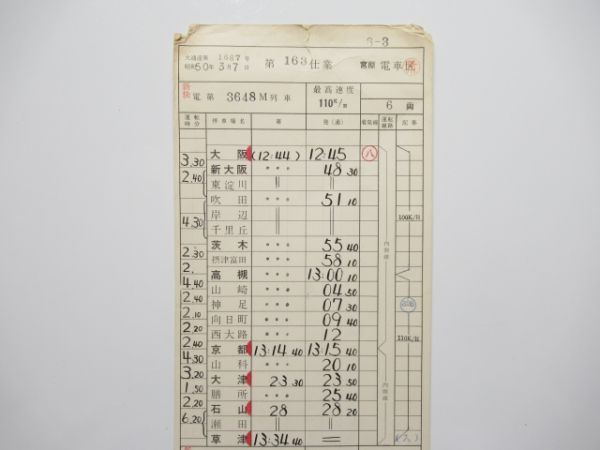 3-3
大鉄達第 1687号
昭和50年 3月7日
第 163仕業
宮原 電車区
新快
電 第 3648M 列車
最高速度
110K/H
6 両
運転時分 停車場名 着 発(通) 電気線 運転線路 記事
大阪 (12:44) 12:45 八
3.30
新大阪 ・・・ 48 30
2.40
東淀川 || ||
吹田 ・・・ 51 10
岸辺 || || 100K/H
4.30
千里丘 || ||
茨木 ・・・ 55 40
2.30
摂津富田 ・・・ 58 10
2.
高槻 ・・・ 13:00 10
4.40
山崎 ・・・ 04 50
2.40
神足 ・・・ 07 30
2.10
向日町 ・・・ 09 40
2.20
西大路 ・・・ 12 110K/H
2.40
京都 13:14 40 13:15 40
4.30
山科 ・・・ 20 10
3.20
大津 23 30 23 50
1.50
膳所 ・・・ 25 40
2.20
石山 28 28 20
6.20
瀬田 || ||
草津 13:34 40 =